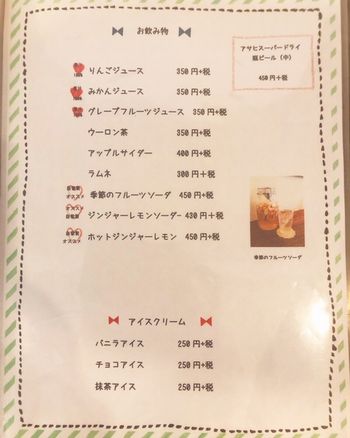 お飲み物
アサヒスーパードライ
瓶ビール（中）
450円+税
りんごジュース 350円+税
みかんジュース 350円+税
グレープフルーツジュース 350円+税
ウーロン茶 350円+税
アップルサイダー 400円+税
ラムネ 300円+税
自家製
オススメ
季節のフルーツソーダ 450円+税
オススメ
自家製
ジンジャーレモンソーダー 430円+税
自家製
オススメ
ホットジンジャーレモン 450円+税
季節のフルーツソーダ
アイスクリーム
バニラアイス 250円+税
チョコアイス 250円+税
抹茶アイス 250円+税